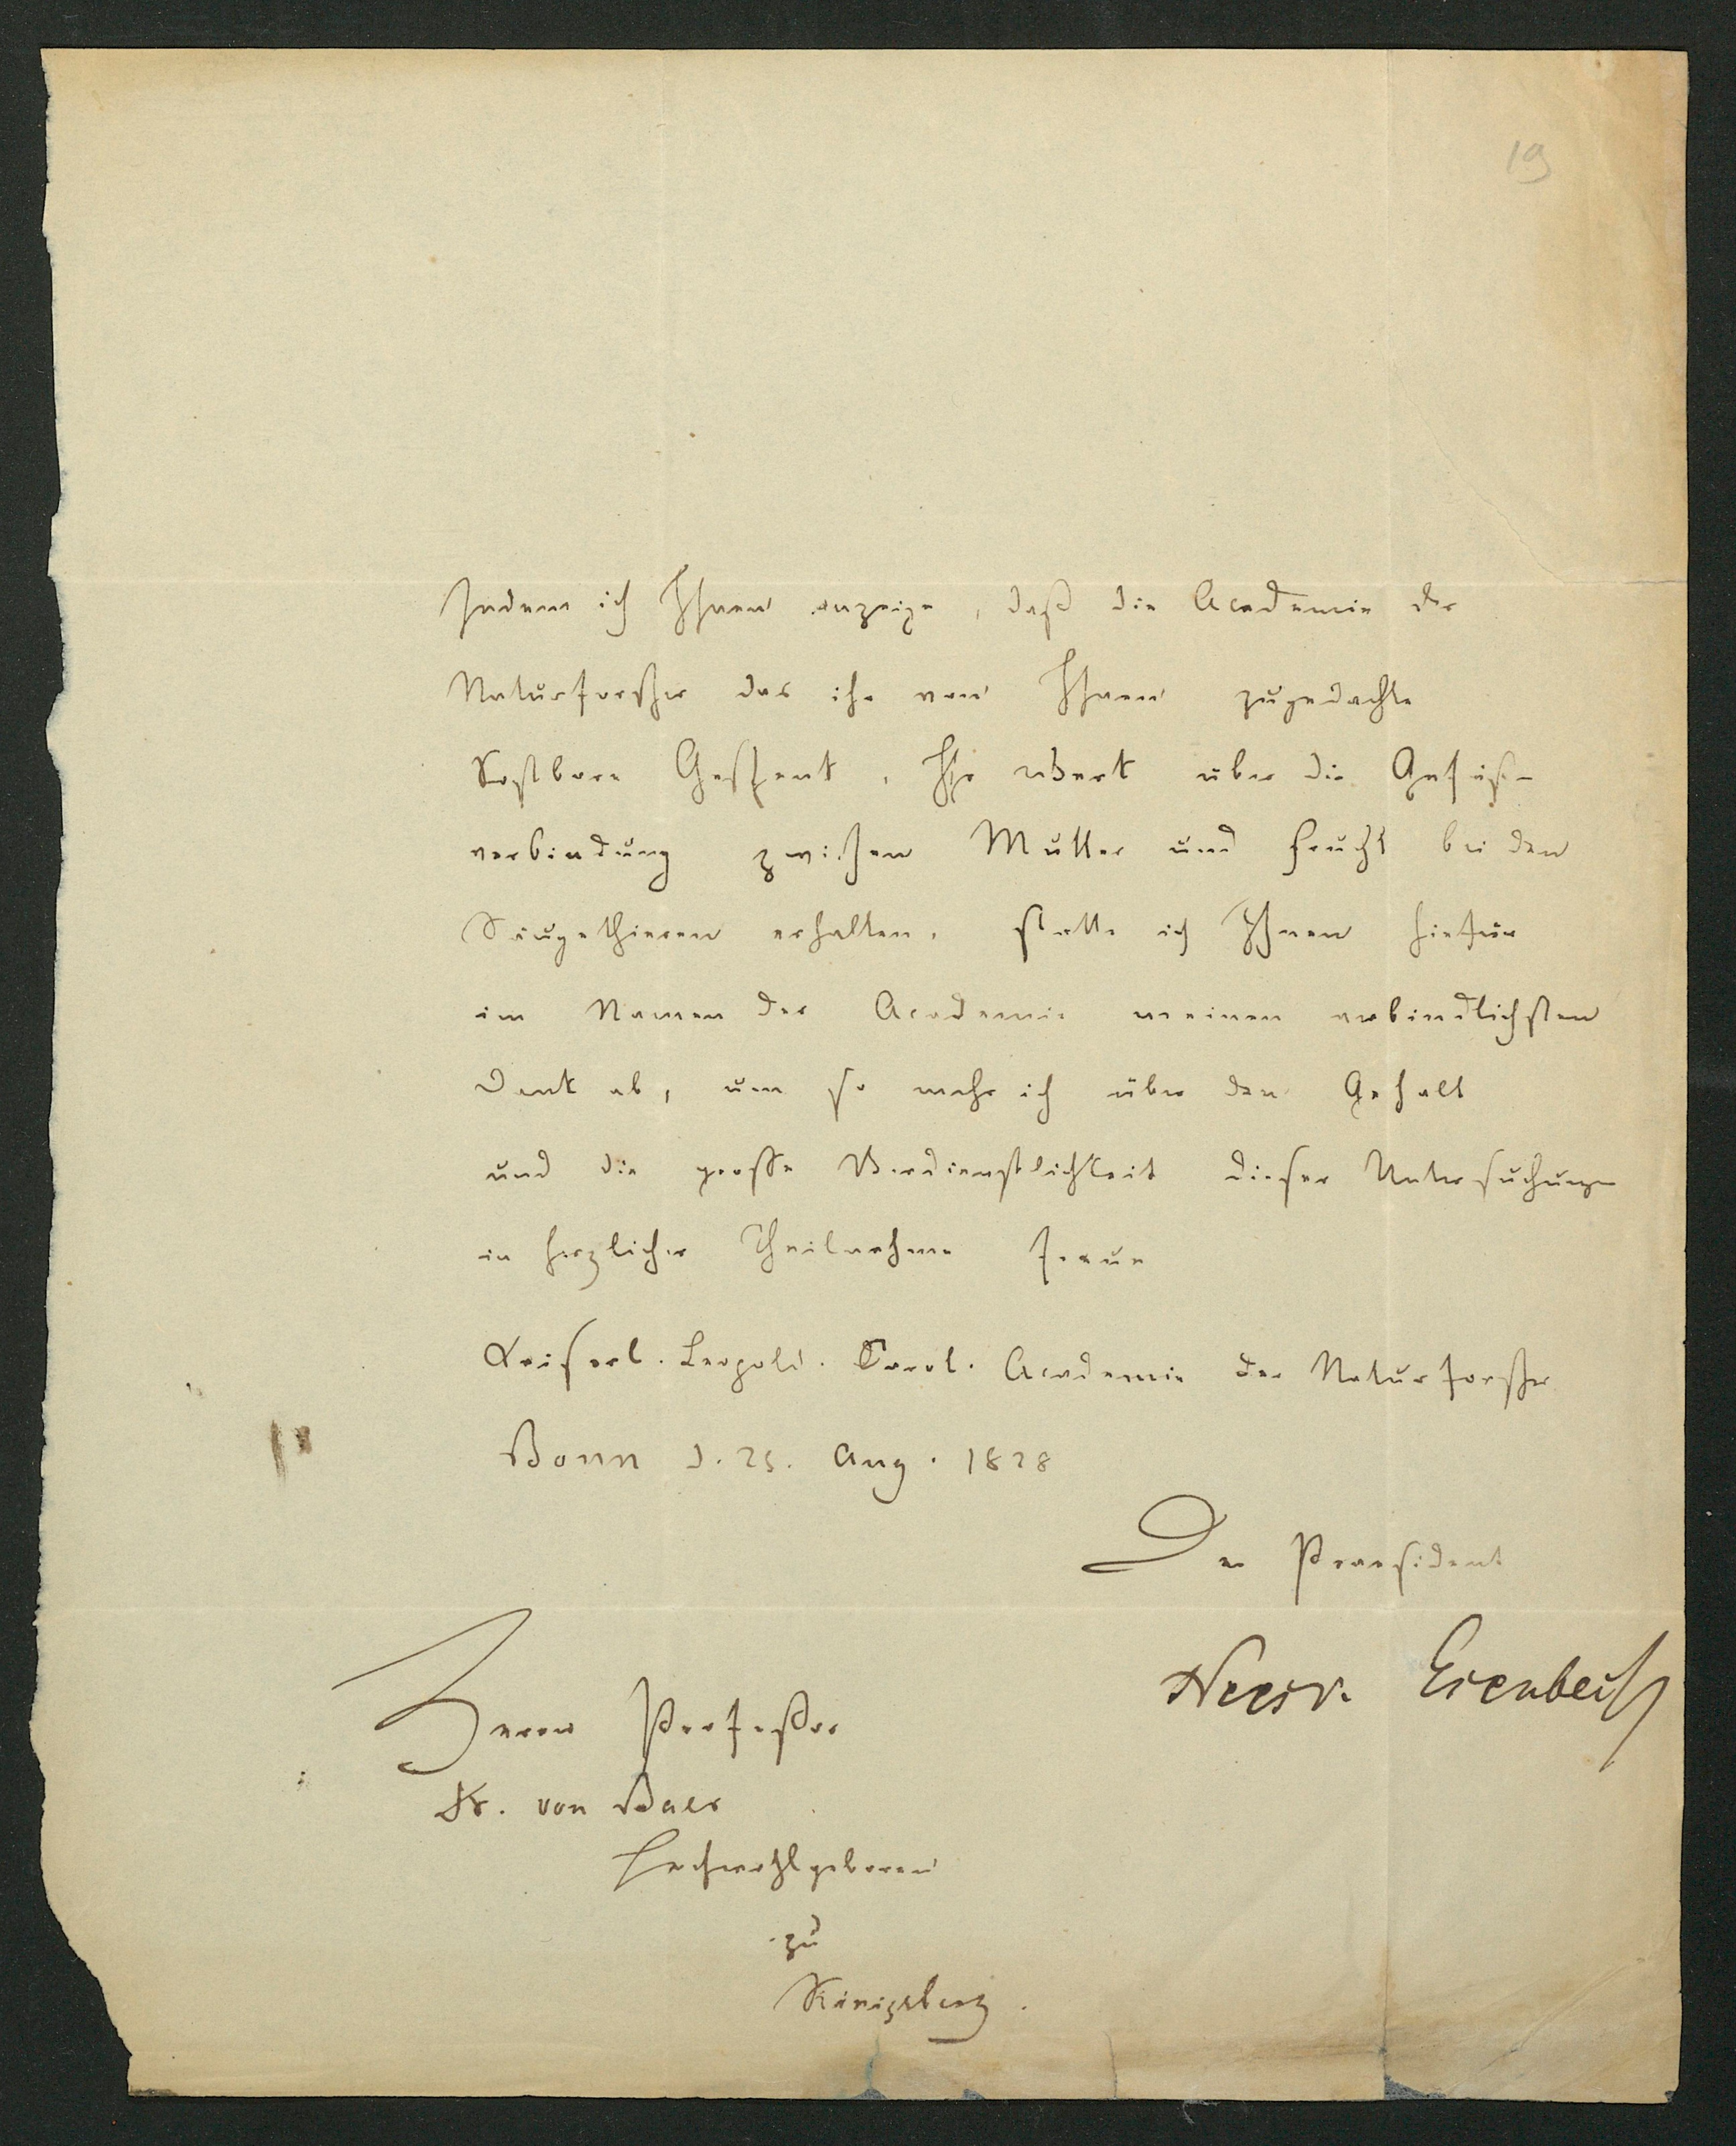 19
Indem ich Ihnen anzeige, daß die Academie der
Naturforscher das ihr von Ihnen zugedachte
kostbare Geschenk, Ihr Werk über die Gefäß-
verbindung zwischen Mutter und Frucht bei den
Säugethieren erhalten, statte ich Ihnen hiefür
im Namen der Academie meinen verbindlichsten
Dank ab, um so mehr ich über den Gehalt
und die grosse Verdienstlichkeit dieser Untersuchungen
in herzlicher Theilnahme freue
Kaiserl. Leopold. Carol. Academie der Naturforscher
Bonn d. 25. Aug. 1828
Der Praesident
Nees v. Esenbeck
Herrn Professor
Dr. von Baer
Hochwohlgeboren
zu
Königsberg.